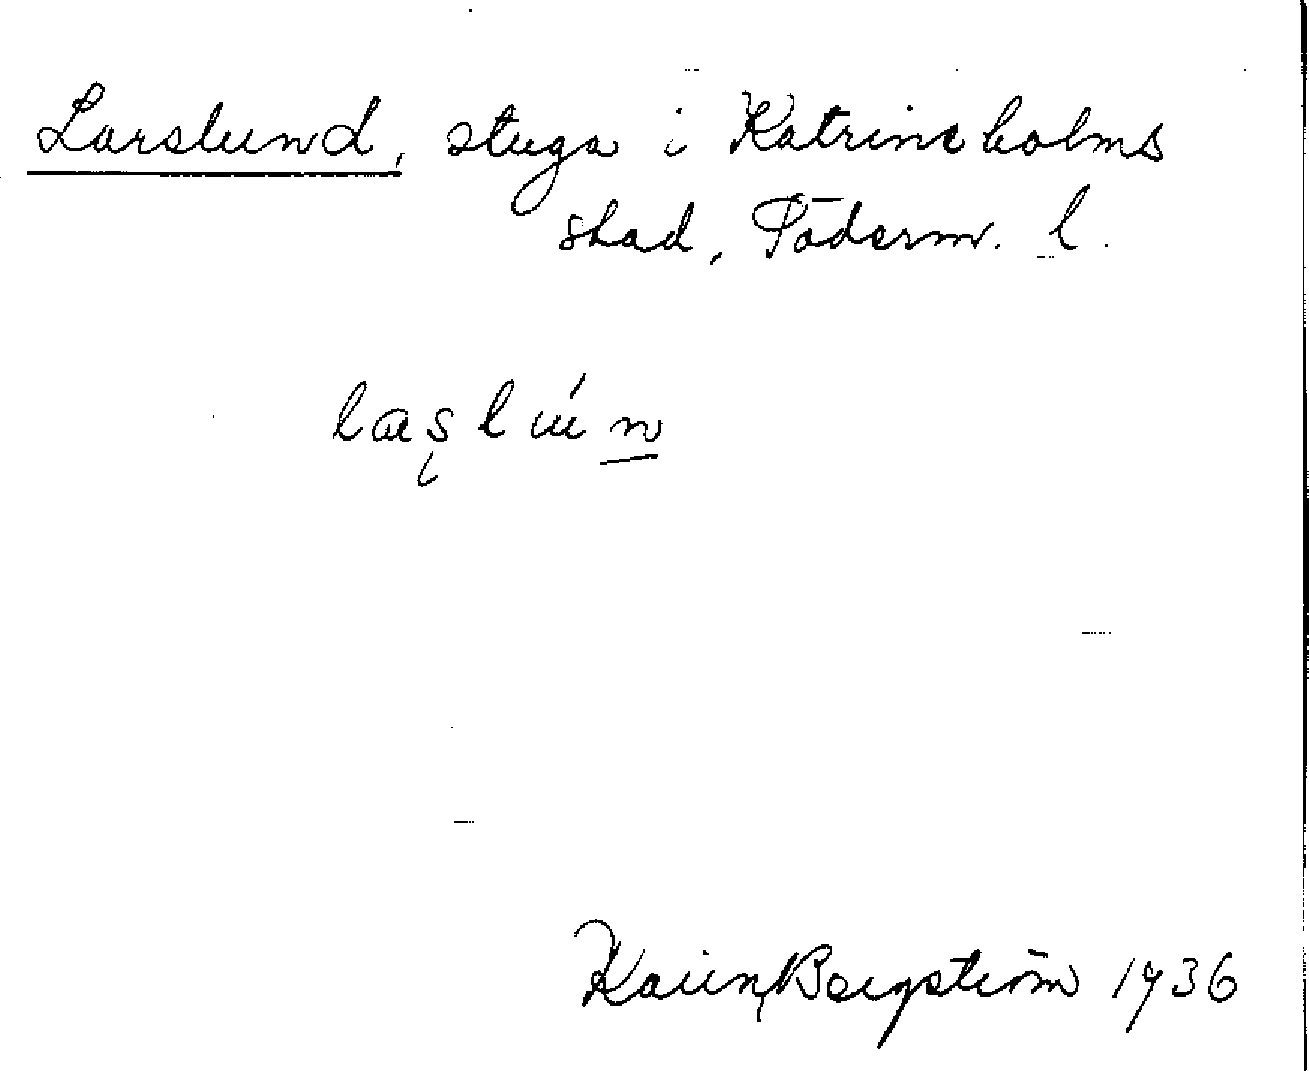 Larslund, stuga i Katrineholms
stad, Söderm. l.
Karin Bergström 1936